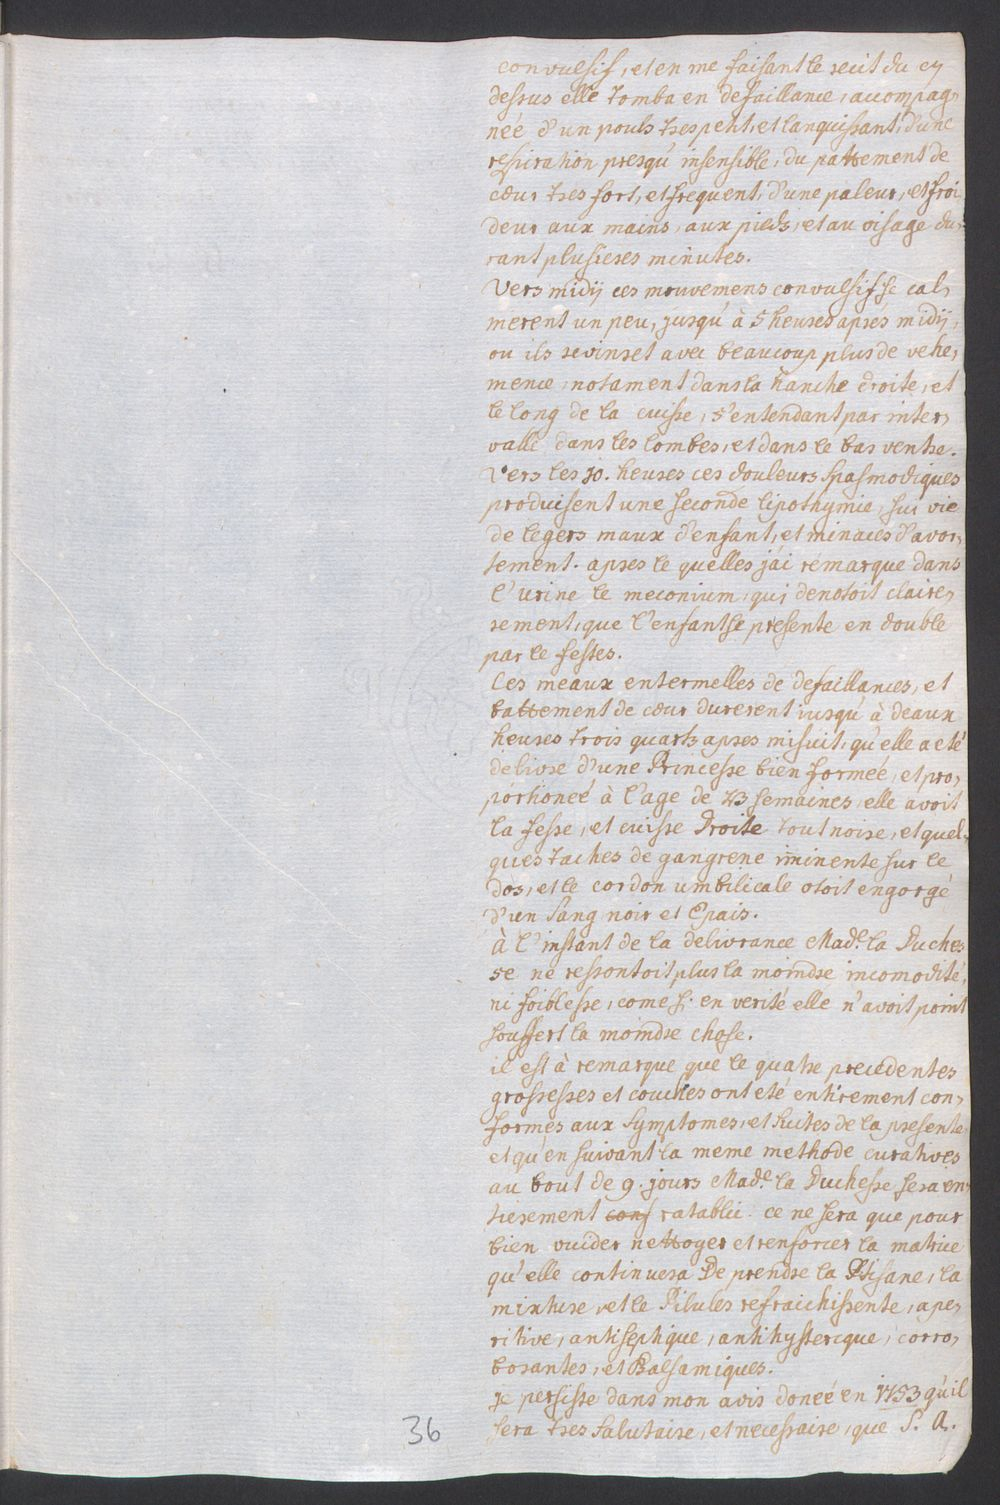 convulsif, et en me faisant le recit du cy
dessus elle tomba en defaillance, accompag,
née d'un pouls tres petit, et languissant, d'une
respiration presqu' insensible, du pattement de
cœur tres fort, et frequent, d'une paleur, et froi
deur aux mains, aux pieds, et au visage du,
rant plusieres minutes.
Vers midij ces mouvemens convulsif se cal,
merent un peu, jusqu' à 5 heures aprés midij,
ou ils revinret avec beaucoup plus de vehe,
mence, notament dans la hanche droite, et
le long de la cuisse, s'entendant par inter,
valle dans les lombes, et dans le bas ventre.
Vers les 10. heures ces douleurs spasmodiques
produisent une seconde lipothymie, sui vie
de legers maux d'enfant, et minaces d'avor,
tement. apres le quelles j'ai remarque dans
l'urine le meconium, qui denotoit claire,
rement, que l'enfant se presente en double
par le fesses.
Ces meaux entermelles de defaillances, et
battement de cœur durerent iusqu' à deaux
heures trois quarts apres minuit, qu'elle a eté
delivre d'une Princesse bien formeé, et pro,
portioneé à l'age de 23 semaines, elle avoit
la fesse, et cuisse droite tout noire, et quel,
ques taches de gangrene iminente sur le
dos, et le cordon umbilicale otoit engorgé
d'un sang noir et Epais.
à l'instant de la delivrance Mad.e la Duches
se ne ressontoit plus la moindre incomodité,
ni foiblesse, come si en verité elle n'avoit point
souffert la moindre chose.
il est à remarque que le quatre precedentes
grossesses et couches ont eté entirement con,
formes aux symptomes, et suites de la presente,
et qu'en suivant la meme methode curatives
au bout de 9. jours Mad.e la Duchesse sera en,
tierement conf ratablie. ce ne sera que pour
bien vuider nettoyer et renforcer la matrice
qu'elle continuera de prendre la Ptisane, la
mixture, et le Pilules refraichissente, ape,
ritive, antiseptique, antihystericque, corro,
borantes, et Balsamiques.
je persisse dans mon avis doneé en 1753 qu'il
sera tres salutaire, et necessaire, que S. A.
36